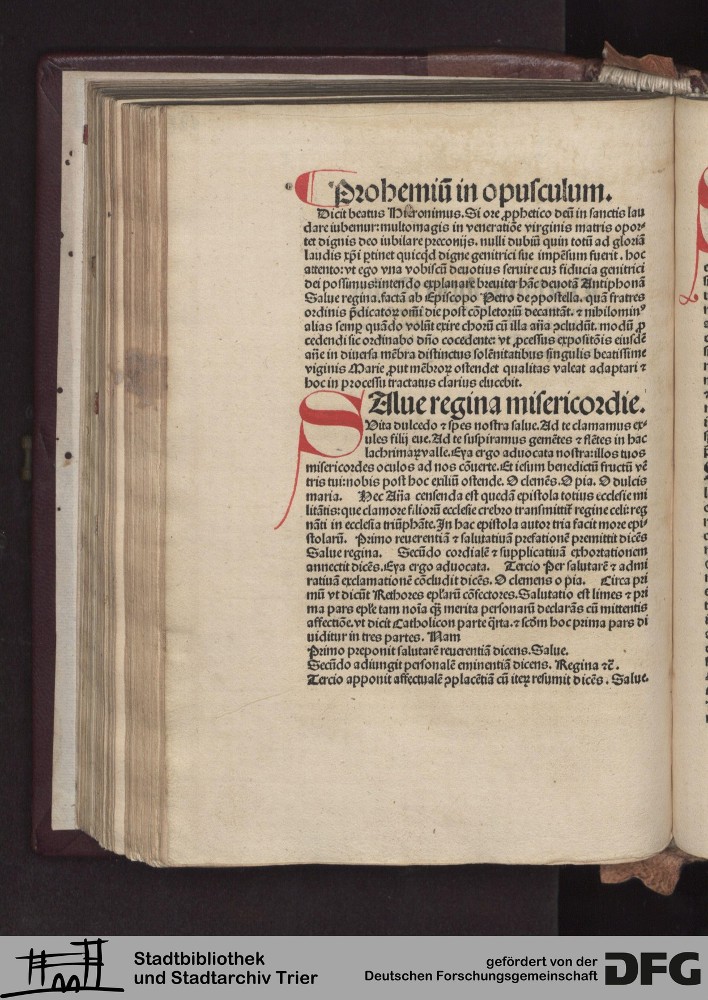 Prohemiū in opusculum.
Dicit beatus Hieronimus. Si ore ꝓphetico deū in sanctis lau
dare iubemur: multomagis in veneratiōe virginis matris opor-
tet dignis deo iubilare preconijs. nulli dubiū quin totū ad gloriā
laudis xp̄i ꝑtinet quicq̄d digne genitrici sue impēsum fuerit. hoc
attento: vt ego vna vobiscū deuotius seruire cuꝫ fiducia genitrici
dei possimus: intendo explanare breuiter hāc deuotā Antiphonā
Salue regina. factā ab Episcopo Petro de ꝯpostella. quā fratres
ordinis p̄dicatoꝝ om̄i die post cōpletoriū decantāt. ⁊ nihilomin⁹
alias semꝑ quādo volūt exire chorū cū illa an̄a ꝯcludūt. modū ꝓ
cedendi sic ordinabo dn̄o cocedente: vt ꝓcessus expositōis eiusdē
an̄e in diuersa mēbra distinctus solēnitatibus singulis beatissime
viginis Marie ꝓut mēbroꝝ ostendet qualitas valeat adaptari ⁊
hoc in processu tractatus clarius elucebit.
SAlue regina misericordie.
Vita dulcedo ⁊ spes nostra salue. Ad te clamamus ex-
ules filij eue. Ad te suspiramus gemētes ⁊ flētes in hac
lachrimaꝝ valle. Eya ergo aduocata nostra: illos tuos
misericordes oculos ad nos cōuerte. Et iesum benedictū fructū vē
tris tui: nobis post hoc exiliū ostende. O clemēs. O pia. O dulcis
maria. Hec An̄a censenda est quedā epistola totius ecclesie mi
litātis: que clamore filiorū ecclesie crebro transmittit̄ regine celi: reg
nāti in ecclesia triūphāte. In hac epistola autor tria facit more epi-
stolarū. Primo reuerentiā ⁊ salutatiuā prefationē premittit dicēs
Salue regina. Secūdo cordialē ⁊ supplicatiuā exhortationem
annectit dicēs. Eya ergo aduocata. Tercio Per salutarē ⁊ admi
ratiuā exclamationē cōcludit dicēs. O clemens o pia. Circa pri
mū vt dicūt Rethores epl̄arū cōfectores. Salutatio est limes ⁊ pri
ma pars epl̄e tam noīa qꝫ merita personarū declarās cū mittentis
affectiōe. vt dicit Catholicon parte q̄rta. ⁊ scd̄m hoc prima pars di
uiditur in tres partes. Nam
Primo preponit salutarē reuerentiā dicens. Salue.
Secūdo adiungit personalē eminentiā dicens. Regina ⁊c̄.
Tercio apponit affectualē ꝯplacētiā cū iteꝝ resumit dicēs. Salue.
Stadtbibliothek
und Stadtarchiv Trier
gefördert von der
Deutschen Forschungsgemeinschaft
DFG